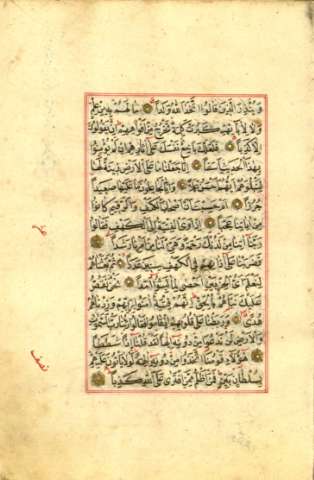 وينذر الذين قالوا اتخذ الله ولدا ما لهم به من علم
ولا لآبائهم كبرت كلمة تخرج من أفواههم إن يقولون
إلا كذبا فلعلك باخع نفسك على آثارهم إن لم يؤمنوا
بهذا الحديث أسفا إنا جعلنا ما على الأرض زينة لها
لنبلوهم أيهم أحسن عملا وإنا لجاعلون ما عليها صعيدا
جرزا أم حسبت أن أصحاب الكهف والرقيم كانوا
من آياتنا عجبا إذ أوى الفتية إلى الكهف فقالوا
ربنا آتنا من لدنك رحمة وهيئ لنا من أمرنا رشدا
فضربنا على آذانهم في الكهف سنين عددا ثم بعثناهم
لنعلم أي الحزبين أحصى لما لبثوا أمدا نحن نقص
عليك نبأهم بالحق إنهم فتية آمنوا بربهم وزدناهم
هدى وربطنا على قلوبهم إذ قاموا فقالوا ربنا رب السموات
والأرض لن ندعوا من دونه إلها لقد قلنا إذا شططا
هؤلاء قومنا اتخذوا من دونه آلهة لولا يأتون عليهم
بسلطان بين فمن أظلم ممن افترى على الله كذبا
نصف